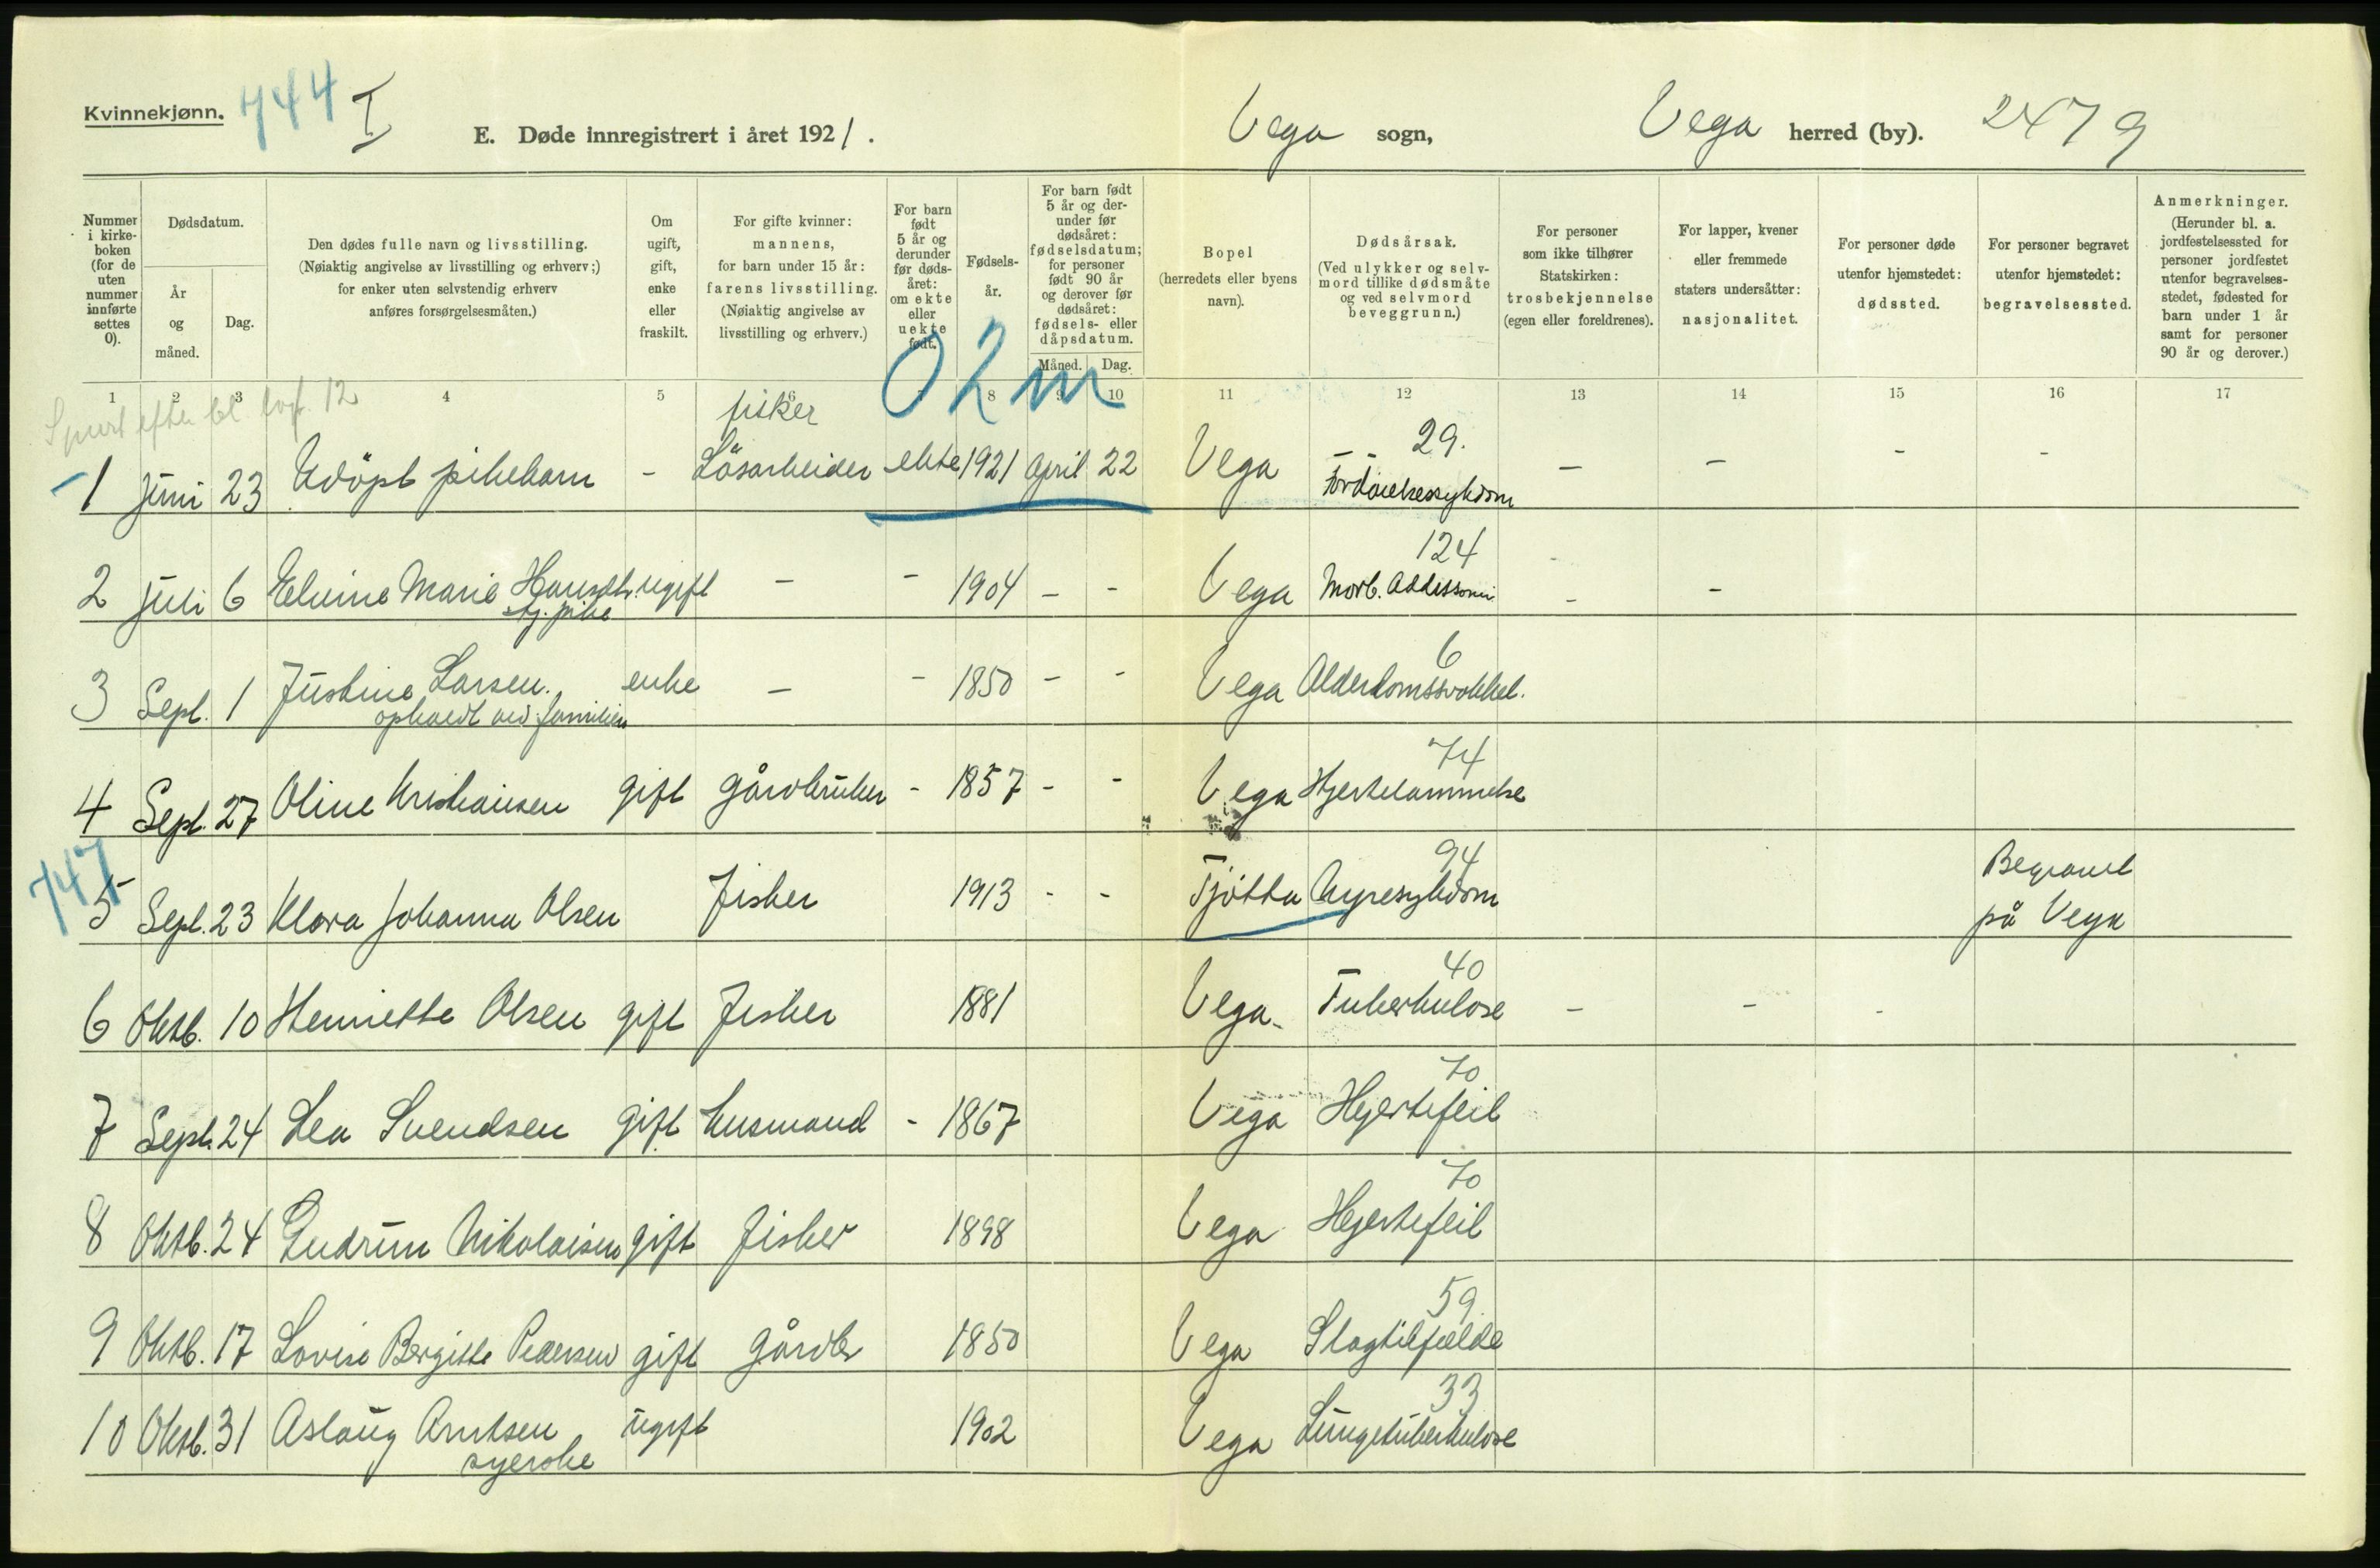 Kvinnekjønn. 744 I
E. Døde innregistrert i året 1921.
Vega sogn, Vega herred (by). 2479
Nummer i kirkeboken (for de uten nummer innførte settes 0).
Dødsdatum.
År og måned.
Dag.
Den dødes fulle navn og livsstilling. (Nøiaktig angivelse av livsstilling og erhverv;) for enker uten selvstendig erhverv anføres forsørgelsesmåten.)
Om ugift, gift, enke eller fraskilt.
For gifte kvinner: mannens, for barn under 15 år: farens livsstilling. (Nøiaktig angivelse av livsstilling og erhverv.)
For barn født 5 år og derunder før dødsåret: om ekte eller uekte født.
Fødselsår.
For barn født 5 år og derunder før dødsåret: fødselsdatum; for personer født 90 år og derover før dødsåret: fødsels- eller dåpsdatum.
Måned. Dag.
Bopel (herredets eller byens navn).
Dødsårsak. (Ved ulykker og selvmord tillike dødsmåte og ved selvmord beveggrunn.)
For personer som ikke tilhører Statskirken: trosbekjennelse (egen eller foreldrenes).
For lapper, kvener eller fremmede staters undersåtter: nasjonalitet.
For personer døde utenfor hjemstedet: dødssted.
For personer begravet utenfor hjemstedet: begravelsessted.
Anmerkninger. (Herunder bl. a. jordfestelsessted for personer jordfestet utenfor begravelsesstedet, fødested for barn under 1 år samt for personer 90 år og derover.)
1 2 3 4 5 6 7 8 9 10 11 12 13 14 15 16 17
02m
Spurt efter bl. 12
fisker 29.
1 Juni 23 Udöpt pikebarn - Løsarbeider ekte 1921 April 22 Vega Fordøielsessykdom - - - -
124
2 Juli 6 Elvine Marie Hansdtr. ugift - - 1904 - - Vega Morb. Addissoni - -
tj. pike
6
3 Sept. 1 Justine Larsen. enke - - 1850 - - Vega Alderdomssvakkel.
opholdt ved familien
74
4 Sept. 27 Oline Kristiansen gift gårdbruker - 1857 - - Vega Hjertelammelse
747 94
5 Sept. 23 Klara Johanna Olsen Fisker 1913 - - Tjötta Nyresykdom Begravet på Vega
40
6 Oktb. 10 Henriette Olsen gift Fisker 1881 Vega Tuberkulose - - -
70
7 Sept. 24 Lea Svendsen gift husmand - 1867 Vega Hjertefeil
70
8 Oktb. 24 Gudrun Nikolaisen gift fisker 1898 Vega Hjertefeil
59.
9 Oktb. 17 Lovise Bergitte Pedersen gift gårdbr 1850 Vega Slagtilfælde
33
10 Oktb. 31 Aslaug Arntsen ugift 1902 Vega Lungetuberkulose
syerske